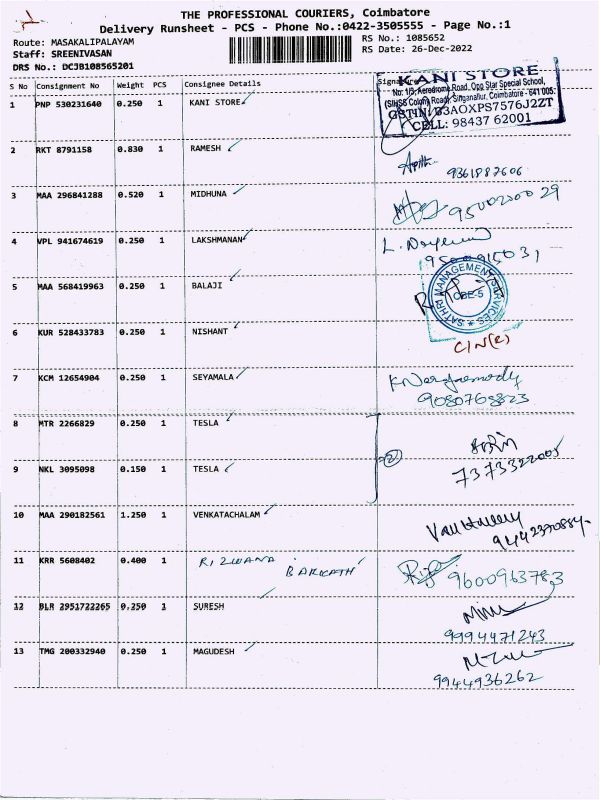 THE PROFESSIONAL COURIERS, Coimbatore
Delivery Runsheet - PCS - Phone No.:0422-3505555 - Page No.:1
Route: MASAKALIPALAYAM RS No.: 1085652
Staff: SREENIVASAN RS Date: 26-Dec-2022
DRS No.: DCJB108565201
S No Consignment No Weight PCS Consignee Details Signature
KANI STORE
No: 1/3, Aerodrome Road, Opp Star Special School,
(SIHS Colony Road), Singanallur, Coimbatore - 641 005.
GSTIN: 33AOXPS7576J2ZT
CELL: 98437 62001
1 PNP 530231640 0.250 1 KANI STORE
2 RKT 8791158 0.830 1 RAMESH
9361887606
3 MAA 296841288 0.520 1 MIDHUNA
4 VPL 941674619 0.250 1 LAKSHMANAN
9500915031
5 MAA 568419963 0.250 1 BALAJI
SATHRI MANAGEMENT SERVICES
CBE-5
6 KUR 528433783 0.250 1 NISHANT
7 KCM 12654904 0.250 1 SEYAMALA
9080768823
8 MTR 2266829 0.250 1 TESLA
2
9 NKL 3095098 0.150 1 TESLA
7373322005
10 MAA 290182561 1.250 1 VENKATACHALAM
11 KRR 5608402 0.400 1 RIZWANA
BARKATH
9600963783
12 BLR 2951722265 0.250 1 SURESH
9994471243
13 TMG 200332940 0.250 1 MAGUDESH
9944936262